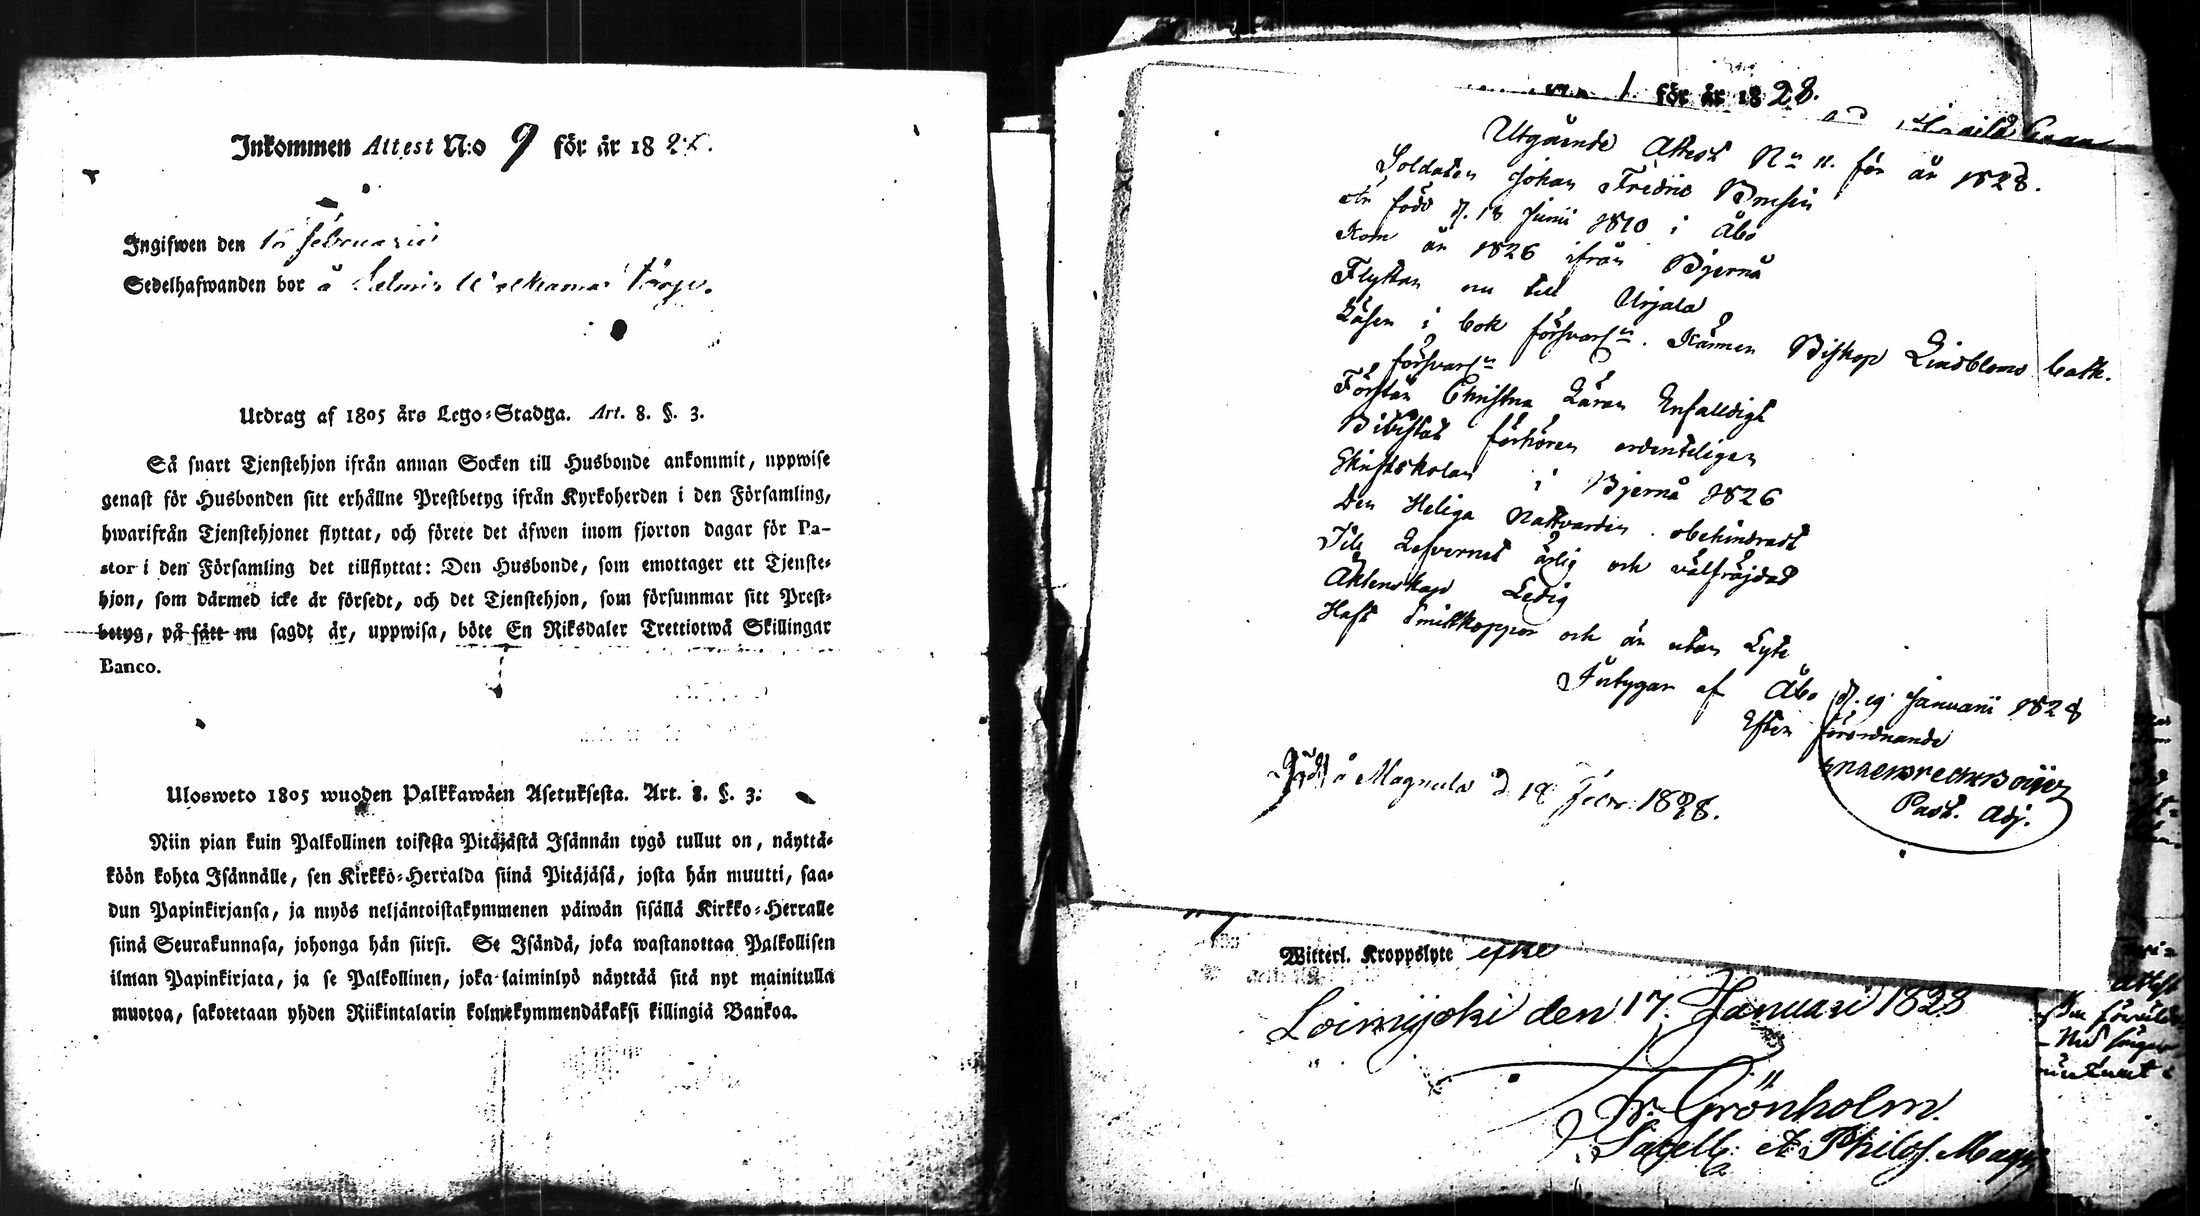 Inkommen Attest N:o 9 för år 18
Ingifwen den 10 Februarii
Sedelhafwanden bor å
Utdrag af 1805 års Lego-Stadga. Art. 8. §. 3.
Så snart Tjenstehjon ifrån annan Socken till Husbonde ankommit, uppwise
genast för Husbonden sitt erhållne Prestbetyg ifrån Kyrkoherden i den Församling,
hwarifrån Tjenstehjonet flyttat, och förete det äfwen inom fjorton dagar för Pa-
stor i den Församling det tillflyttat: Den Husbonde, som emottager ett Tjenste-
hjon, som därmed icke är försedt, och det Tjenstehjon, som försummar sitt Prest-
betyg, på sätt nu sagdt är, uppwisa, böte En Riksdaler Trettiotwå Skillingar
Banco.
Ulosweto 1805 wuoden Palkkawäen Asetuksesta. Art. 8. §. 3.
Niin pian kuin Palkollinen toisesta Pitäjästä Isännän tygö tullut on, näyttä-
köön kohta Isännälle, sen Kirkko-Herralda siinä Pitäjäsä, josta hän muutti, saa-
dun Papinkirjansa, ja myös neljäntoistakymmenen päiwän sisällä Kirkko-Herralle
siinä Seurakunnasa, johonga hän siirsi. Se Isändä, joka wastanottaa Palkollisen
ilman Papinkirjata, ja se Palkollinen, joka laiminlyö näyttää sitä nyt mainitulla
muotoa, sakotetaan yhden Riikintalarin kolmekymmendäkaksi killingiä Bankoa.
1 för år 1828.
Utgående Attest No 11. för år 1828.
Soldaten Johan Fredric
är född d. 18 Junii 1810 i Åbo
Kom år 1826 ifrån Bjernå
Flyttar nu till Urjala
Läser i bok försvarln. Känner Biskop Lindbloms Cath.
försvarln
Förstår Christna Läran Enfalldigt
Bivistat förhören ordenteligen
Skriftskolan i Bjernå 1826
Den Heliga Nattvarden obehindradt
Till Lefvernet ärlig och välfräjdad
Äktenskap Ledig
Haft Smittkoppor och är utan Lyte
Intygar af Åbo d. 19 Januarii 1828
Efter förordnande
Past. Adj.
å Magnula d 18 Febr. 1828.
Witterl. Kroppslyte
Loimijoki den 17. Januari 1828
Fr. Grönholm.
Sacell. & Philos. Mag